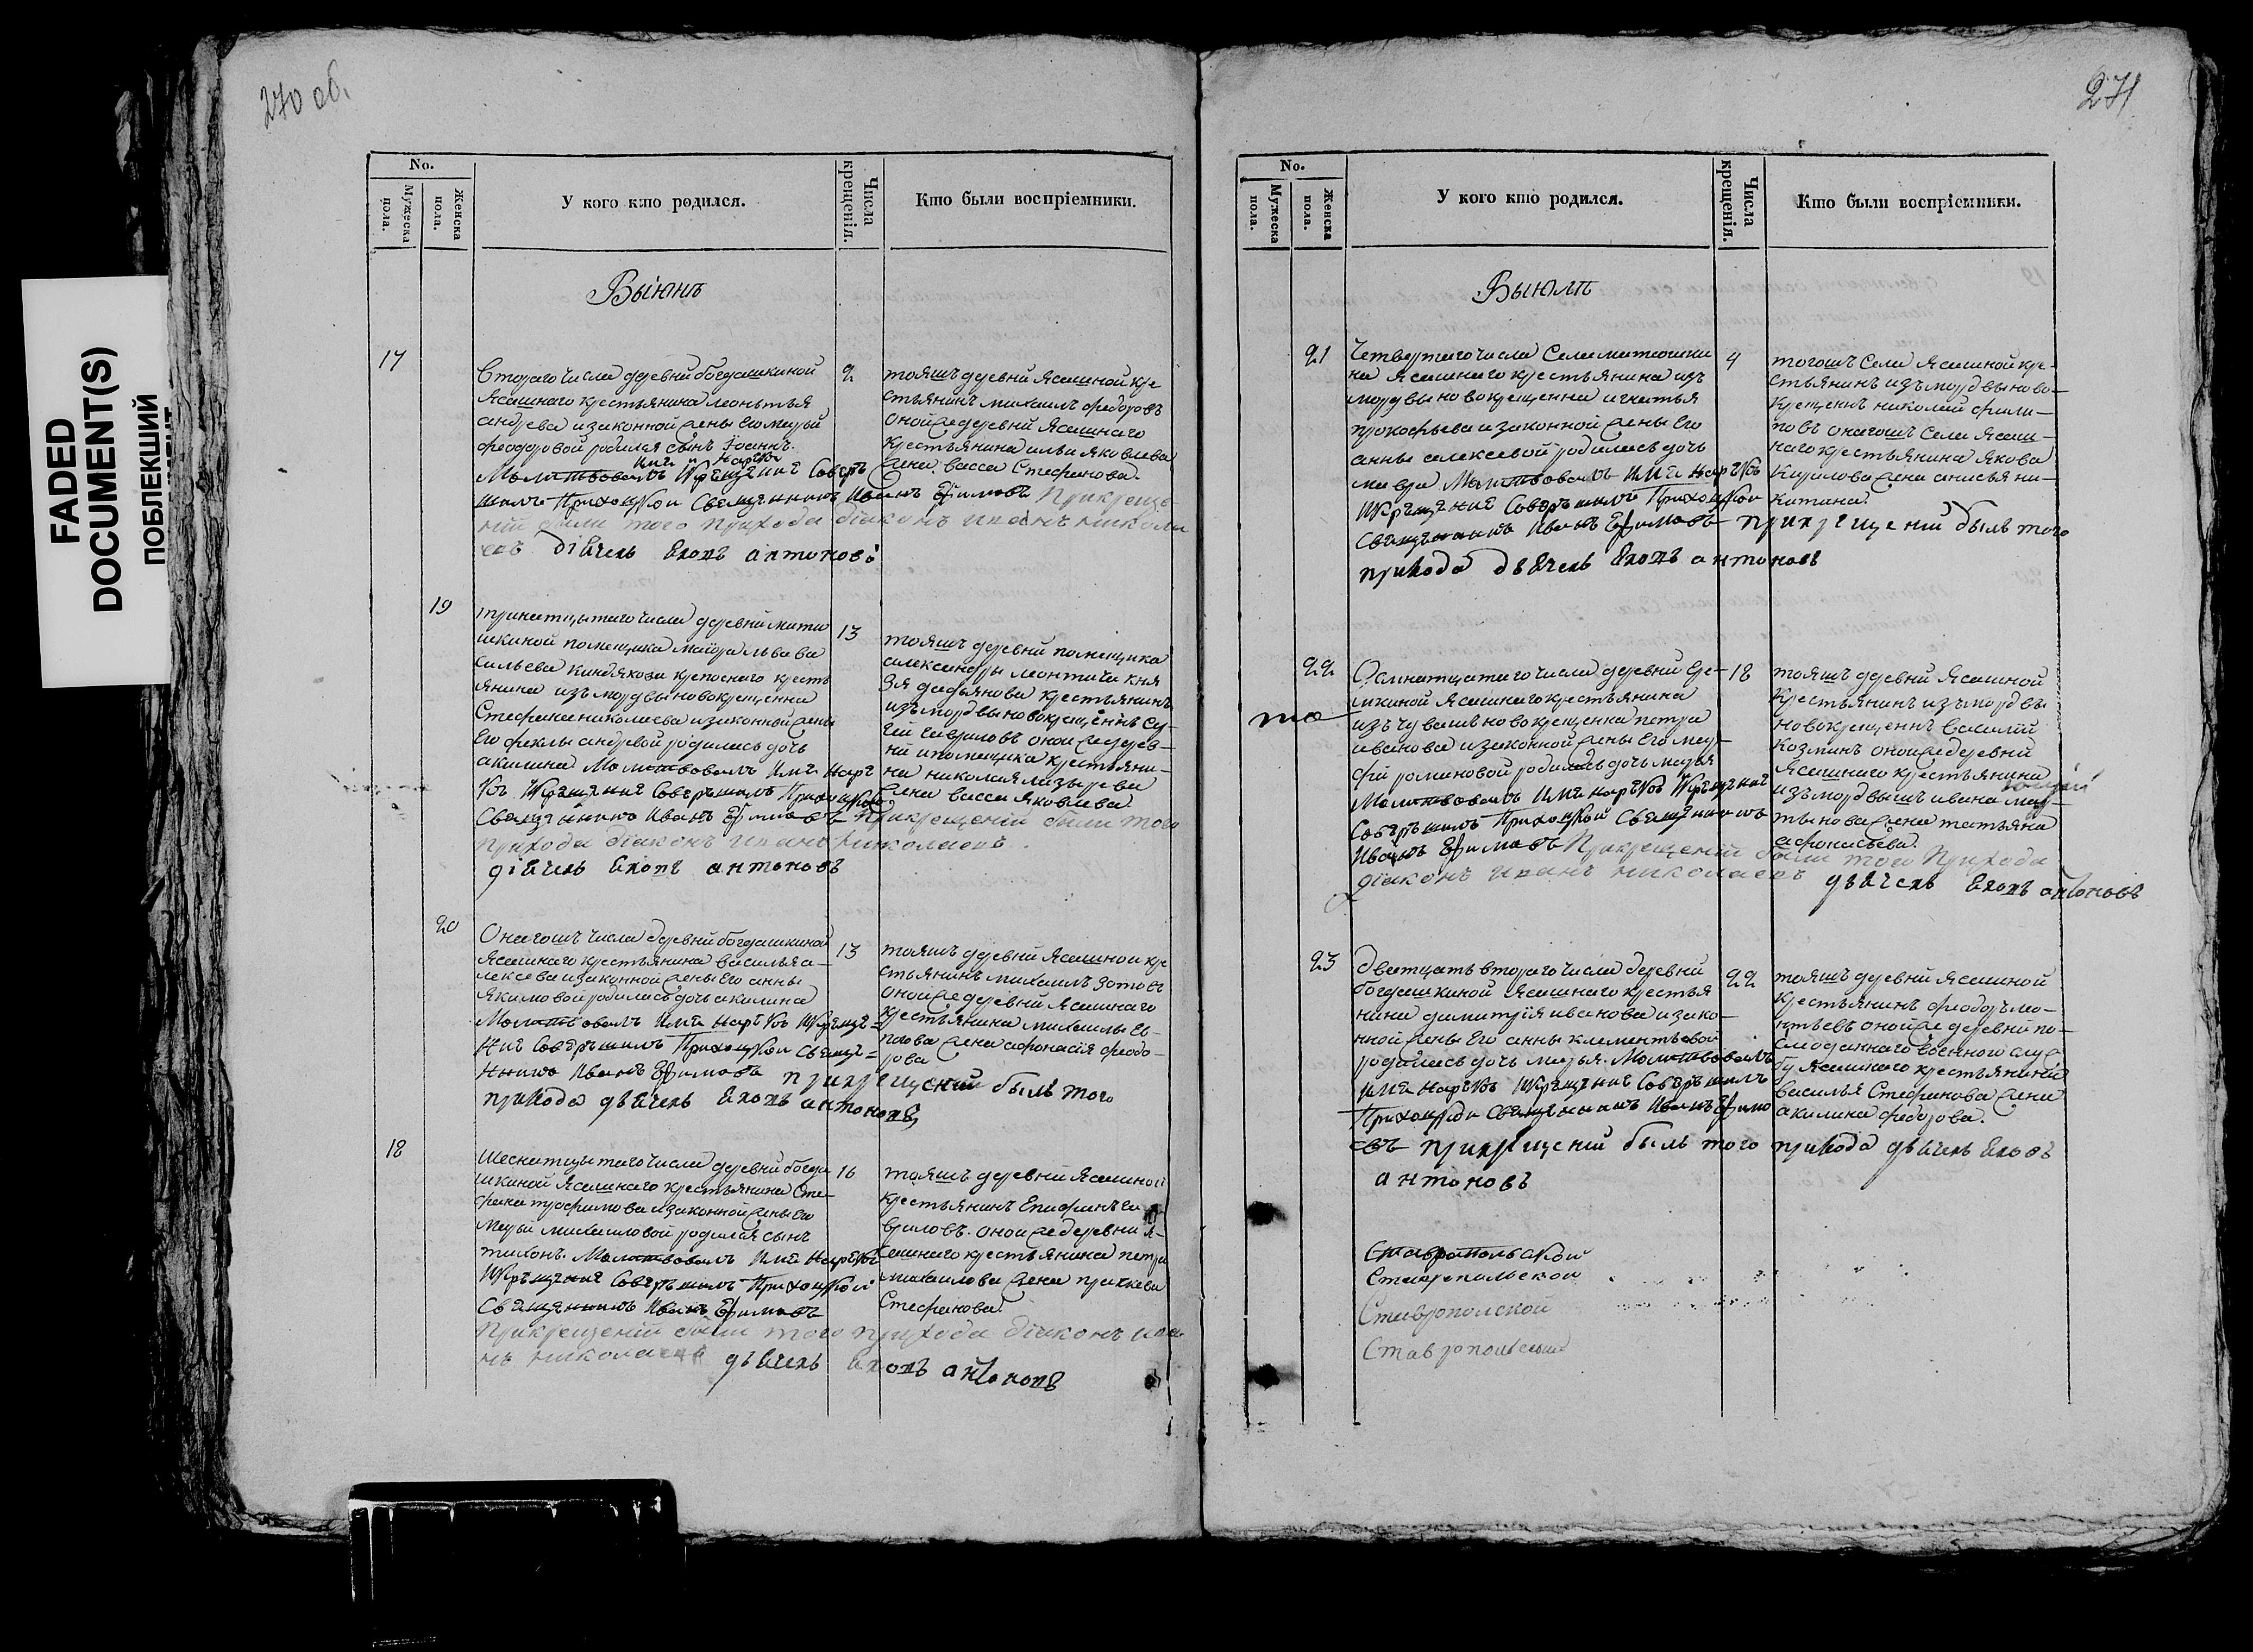 270 об.
FADED
DOCUMENT(S)
ПОБЛЕКШИЙ
No.
Мужеска пола.
Женска пола.
У кого кто родился.
Числа крещенія.
Кто были воспріемники.
Выюнѣ
17
Втораго числа деревни богдашкиной
Ясашнаго крестьянина леонтья
андреева изаконной жены Его марьи
феодоровой родился сынъ Іоаннъ.
имя нарекъ
Молитвовалъ Икрещение Совер
шилъ Приходской Священникъ Иванъ Ефимовъ Прикреще
ніи были того прихода діаконъ иванъ никола
евъ діячекъ Яковъ антоновъ
2
тояшъ деревни Ясашной кре
стьянинъ михаилъ федоровъ
оной же деревни Ясашнаго
крестьянина ильи яковлева
жена васса Стефанова.
19
тринатцытаго числа деревни матю
шкиной помещика маіора льва ва
сильева киндякова крепосного кресть
янина изъ мордвы новокрещенна
Стефана николаева изаконной жены
Его феклы андревой родилась дочь
акилина Молитвовалъ Имя Наре
къ Икрещение Совершилъ Приходской
Священникъ Иванъ Ефимовъ Прикрещеніи были того
прихода діаконъ иванъ николаевъ.
діячекъ Яковъ антоновъ
13
тояшъ деревни помещика
александры леонтича кня
зя дадьянова крестьянинъ
изъ мордвы новокрещенъ Сер-
гей гавриловъ оной же дерев-
ни ипомещика крестьяни-
на николая лазырева
жена васса яковлева.
20
Онагошъ числа деревни богдашкиной
Ясашнаго крестьянина василья а-
лексева изаконной жены Его анны
Якимовой родилась дочь акилина
Молитвовалъ Имя Нарекъ Икреще=
Ние Совершилъ Приходской Священ=
Никъ Иванъ Ефимовъ прикрещеніи былъ того
прихода дьячекъ Яковъ антоновъ
13
тояшъ деревни Ясашной кре
стьянинъ михаилъ зотовъ
оной же деревни Ясашнаго
крестьянина михаилы Ев-
лова жена афонасія феодо-
рова
18
Шеснатцытаго числа деревни богда
шкиной Ясашнаго крестьянина Сте-
фана трофимова изаконной жены Его
марьи михаиловой родился сынъ
тихонъ. Молитвовалъ Имя Нарекъ
Икрещение Совершилъ Приходской
Священникъ Иванъ Ефимовъ
Прикрещеніи были того прихода діаконъ ива
нъ николаевъ дьячекъ Яковъ антоновъ
16
тояшъ деревни Ясашной
крестьянинъ Епифанъ га
вриловъ. оной же деревни я-
сашнаго крестьянина петра
михаилова жена
Стефанова.
271
No.
Мужеска пола.
Женска пола.
У кого кто родился.
Числа крещенія.
Кто были воспріемники.
Выюлѣ
21
Четвертаго числа Села матюшки
на Ясашнаго крестьянина изъ
мордвы новокрещенна игнатья
прокофьева изаконной жены Его
анны алексевой родилась дочь
мавра Молитвовалъ Имя Нарекъ
Икрещение Совершилъ Приходской
Священникъ Иванъ Ефимовъ прикрещеніи былъ того
прихода дьячекъ Яковъ антоновъ
4
тогошъ Села Ясашной кре-
стьянинъ изъ мордвы ново-
крещенъ николай фили-
повъ онагошъ Села Ясаш-
наго крестьянина Якова
Кирилова жена анисья ни-
китина.
22
Осмнатцатаго числа деревни Ере-
мкиной Ясашнаго крестьянина
изъ чувашъ новокрещенна петра
иванова изаконной жены Его мар-
фы романовой родилась дочь марья
Молитвовалъ Имя нарекъ Икрещение
Совершилъ Приходской Священникъ
Иванъ Ефимовъ Прикрещеніи были того прихода
діаконъ иванъ николаевъ дьячекъ Яковъ антоновъ
18
тояшъ деревни Ясашной
крестьянинъ изъ мордвы
новокрещенъ василій
Козминъ оной же деревни
Ясашнаго крестьянина
изъ мордвы жъ ивана мар-
тынова жена татьяна
афонасьева.
23
Дватцать втораго числа деревни
богдашкиной Ясашнаго крестья
нина димитрія иванова изако-
нной жены Его анны клементьевой
родилась дочь марья. Молитвовалъ
Имя нарекъ Икрещение Совершилъ
Приходской Священникъ Иванъ Ефимо
въ прикрещеніи былъ того прихода дьячекъ Яковъ
антоновъ
22
тояшъ деревни Ясашной
крестьянинъ феодоръ ле-
онтьевъ оной же деревни
военного
Ясашнаго крестьянина
василья Стефанова жена
акилина федорова.
Ставропольской
Ставропольской
Ставрополской